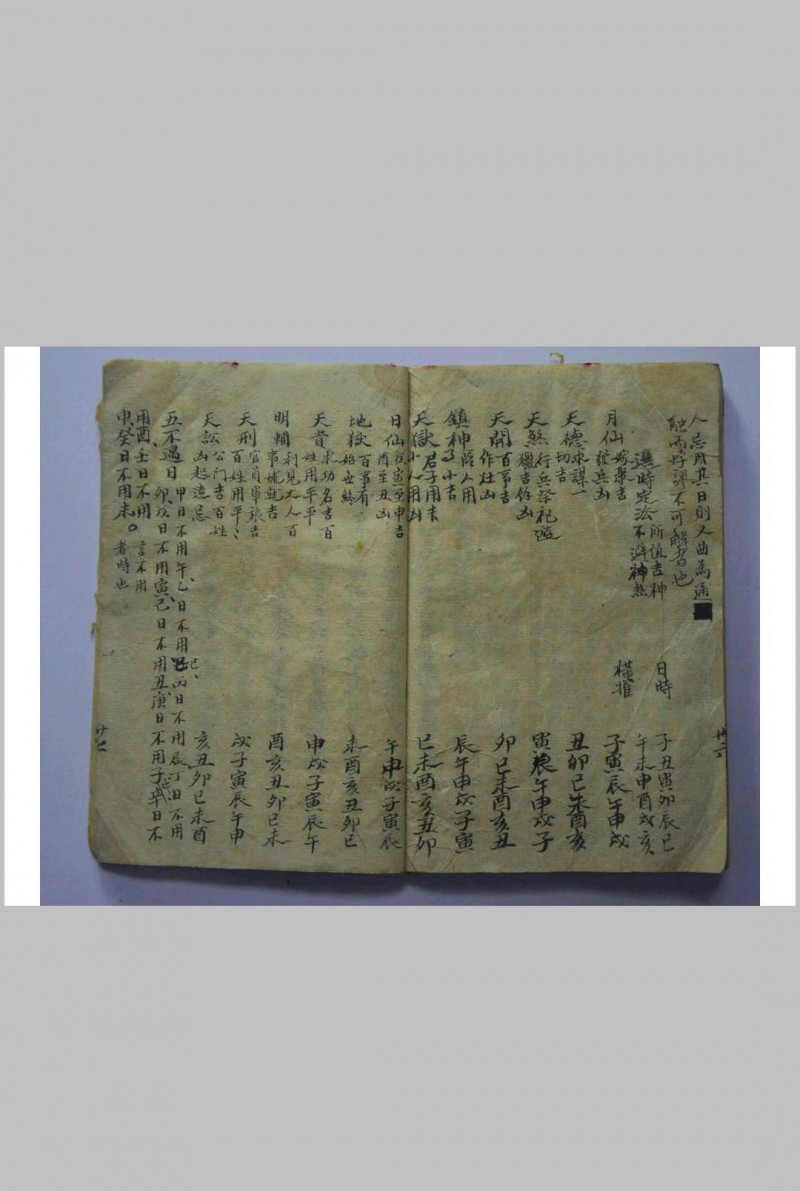 人忌用其日則又曲為通
融而好謬不可解者也
選時定法 所值吉神 不避神煞
日時 子丑寅卯辰巳 午未申酉戌亥
橫推
月仙 嫁娶吉 發兵凶 子寅辰午申戌
天德 求謀一切吉 丑卯巳未酉亥
天煞 行兵祭祀 吉 凶 寅辰午申戌子
天開 百事吉 作灶凶 卯巳未酉亥丑
鎮神 人用 小吉 辰午申戌子寅
天獄 君子用吉 小人用凶 巳未酉亥丑卯
日仙 從寅至申吉 酉至丑凶 午申戌子寅辰
地獄 百事有始無終 未酉亥丑卯巳
天貴 求功名吉 百姓用平平 申戌子寅辰午
明輔 利見大人百事成就吉 酉亥丑卯巳未
天刑 官員軍旅吉 百姓用平平 戌子寅辰午申
天訟 公門吉百姓凶起造忌 亥丑卯巳未酉
五不遇日 甲日不用午乙日不用巳丙日不用辰丁日不用
卯戊日不用寅己日不用丑庚日不用子辛日不
用酉壬日不用
申癸日不用未。 言不用者時也
廿六
廿七